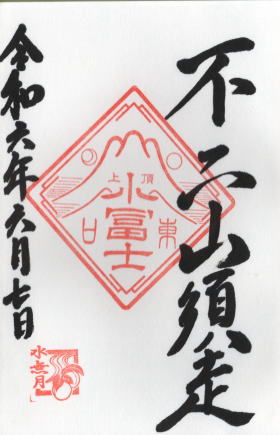 不二山須走
頂上
小冨士
東口
令和六年六月七日
水無月